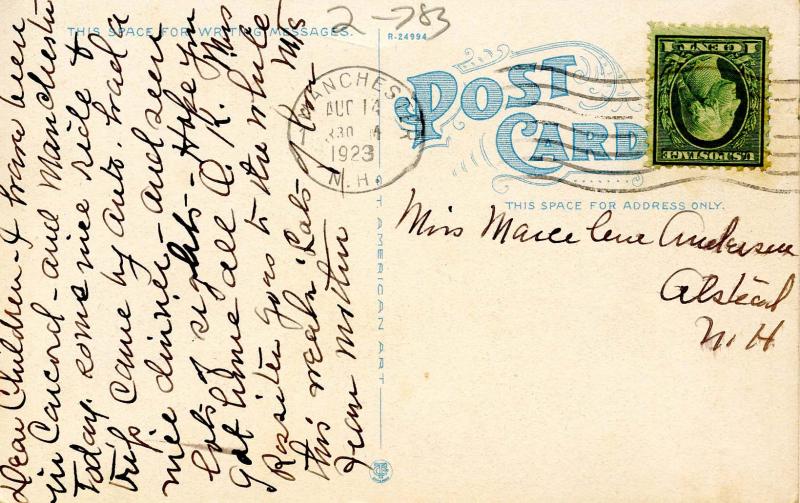 2-783
THIS SPACE FOR WRITING MESSAGES.
R-24994
POST CARD
THIS SPACE FOR ADDRESS ONLY.
MANCHESTER
AUG 14
1923
N.H.
U.S. POSTAGE
1 CENT 1
AMERICAN ART
Dear Children - I have been
in Concord - and Manchester
today. some nice ride &
trip came by auto. had a
nice dinner - and seen
lots of sights - Hope you
got home all O.K. Miss
Rossiter goes to the whole
this week. Lots love
from Mother
Miss Marcelene Andersen
Alstead
N.H